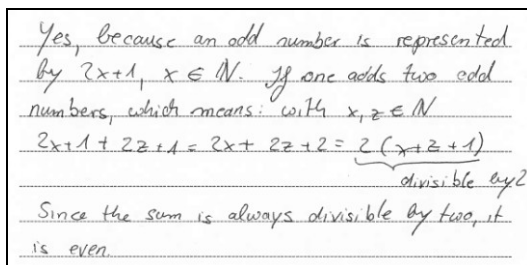 Yes, because an odd number is represented
by 2x+1, x ∈ ℕ. If one adds two odd
numbers, which means: with x, z ∈ ℕ
2x+1 + 2z+1 = 2x + 2z + 2 = 2(x+z+1)
divisible by 2
Since the sum is always divisible by two, it
is even.